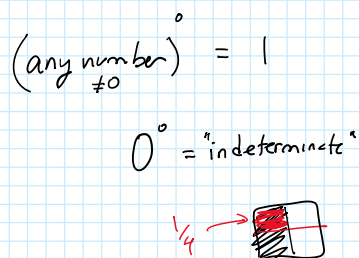 (any number)⁰ = 1
≠0
0⁰ = "indeterminate"
1/4